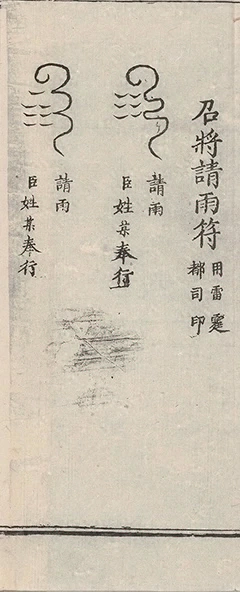 召將請雨符
用雷霆
都司印
請雨
臣姓某奉行
請雨
臣姓某奉行